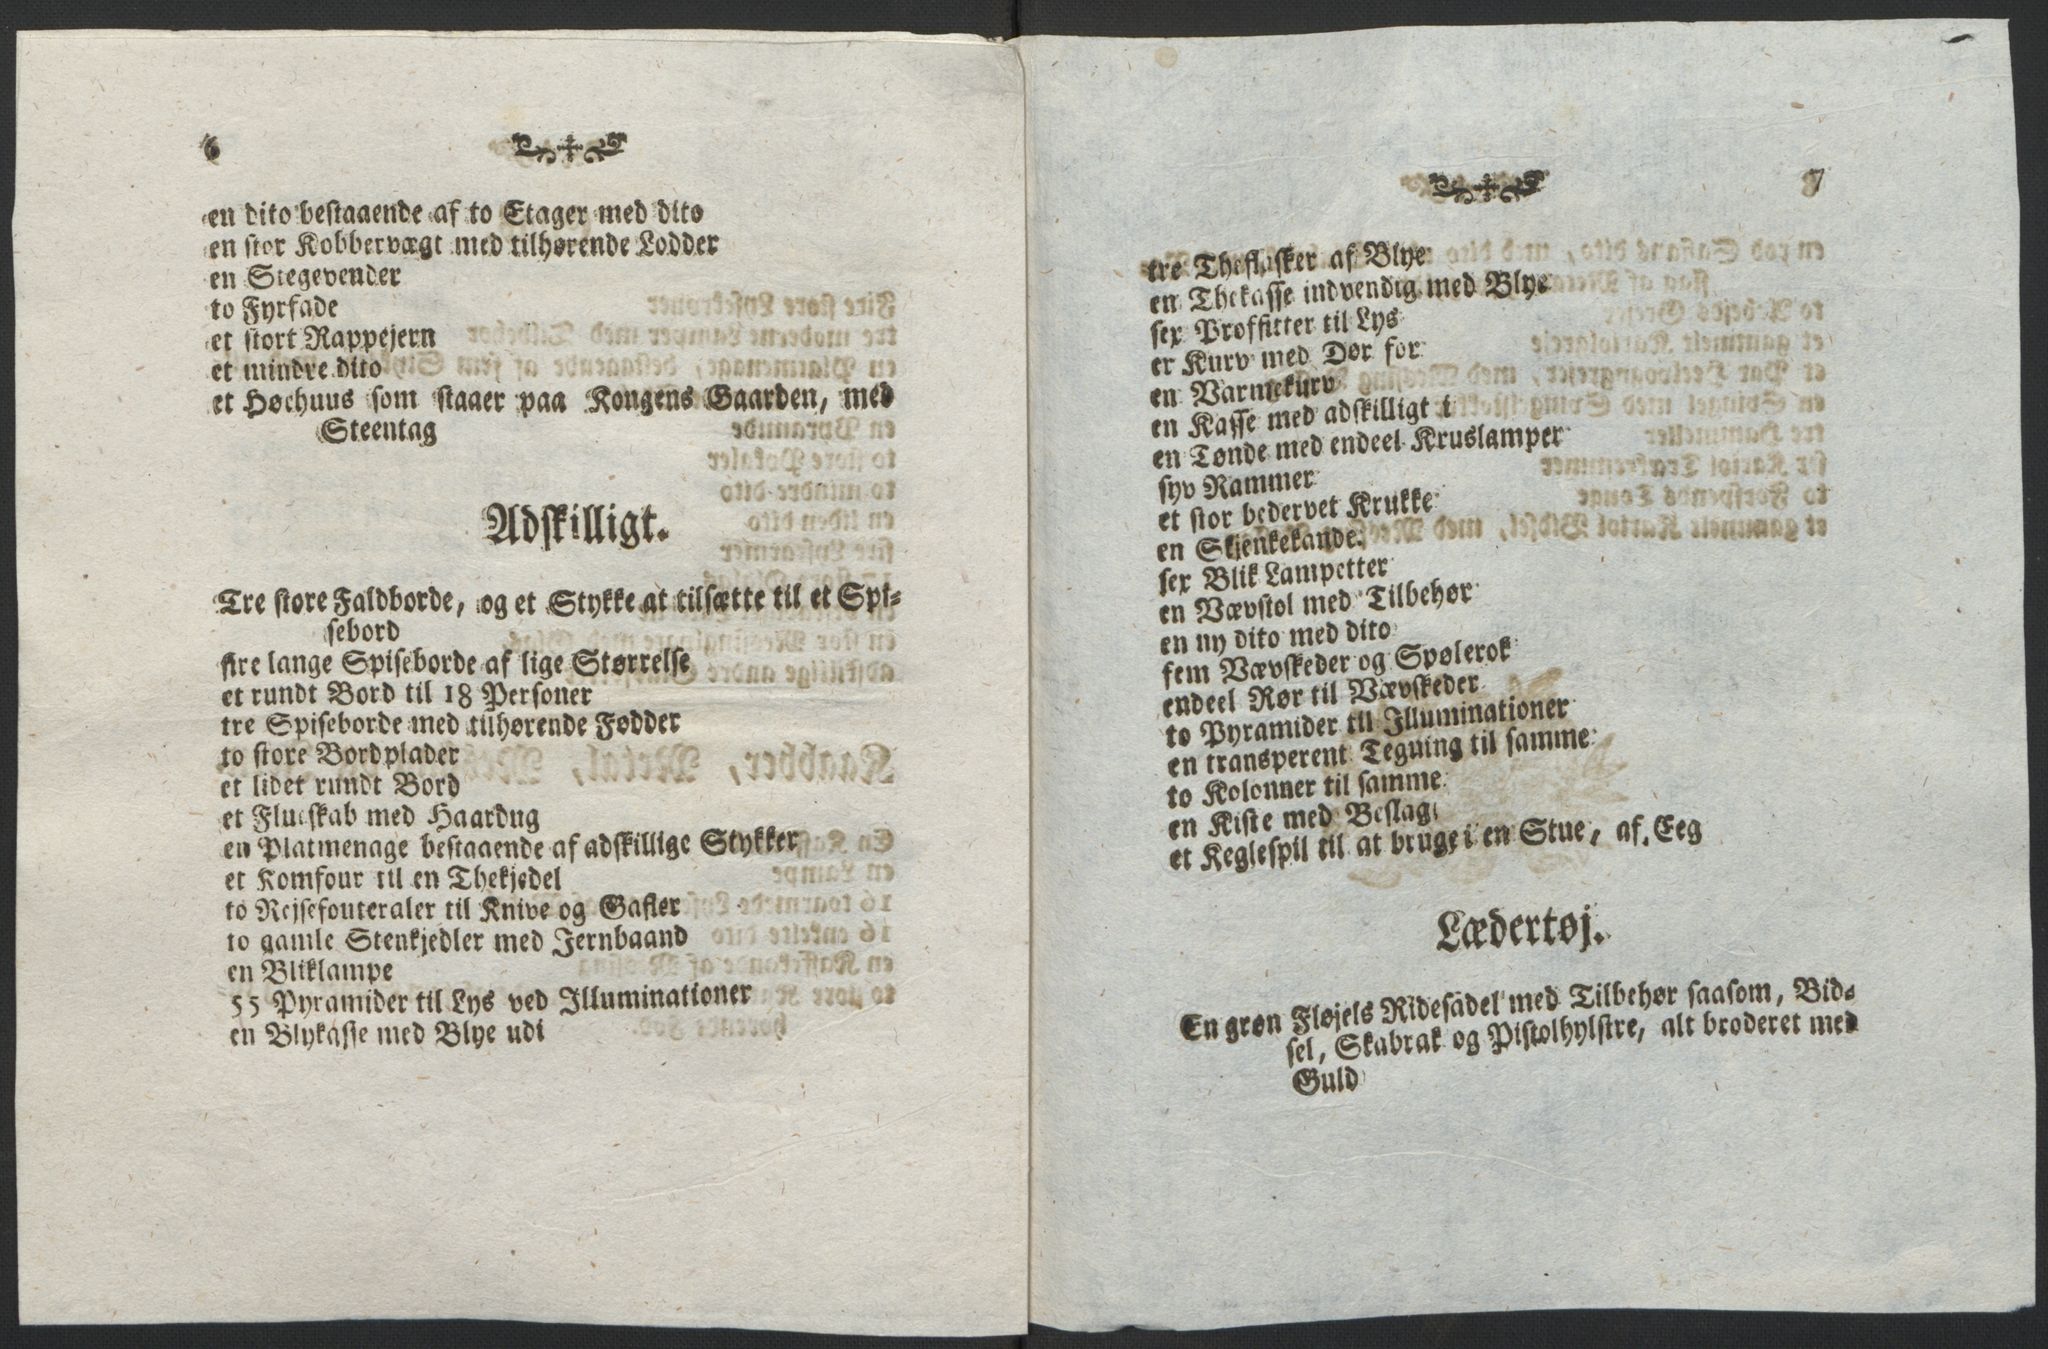 6
en dito bestaaende af to Etager med dito
en stor Kobbervægt med tilhørende Lodder
en Stegevender
to Fyrfade
et stort Rappejern
et mindre dito
et Høehuus som staaer paa Kongens Gaarden, med
Steentag
Adskilligt.
Tre store Faldborde, og et Stykke at tilsætte til et Spi-
sebord
fire lange Spiseborde af lige Størrelse
et rundt Bord til 18 Personer
tre Spiseborde med tilhørende Fødder
to store Bordplader
et lidet rundt Bord
et Flueskab med Haardug
en Platmenage bestaaende af adskillige Stykker
et Komfour til en Thekjedel
to Rejsefouteraler til Knive og Gafler
to gamle Stenkjedler med Jernbaand
en Bliklampe
55 Pyramider til Lys ved Illuminationer
en Blykasse med Blye udi
7
tre Theflasker af Blye
en Thekasse indvendig med Blye
sex Proffitter til Lys
er Kurv med Dør for
en Varmekurv
en Kasse med adskilligt i
en Tønde med endeel Kruslamper
syv Rammer
et stor bedervet Krukke
en Skjenkekande.
sex Blik Lampetter
en Vævstol med Tilbehør
en ny dito med dito
fem Vævskeder og Spølerok
endeel Rør til Vævskeder
to Pyramider til Illuminationer
en transperent Tegning til samme
to Kolonner til samme
en Kiste med Beslag
et Keglespil til at bruge i en Stue, af Eeg
Lædertøj.
En grøn Fløjels Ridesadel med Tilbehør saasom, Bid-
sel, Skabrak og Pistolhylstre, alt broderet med
Guld